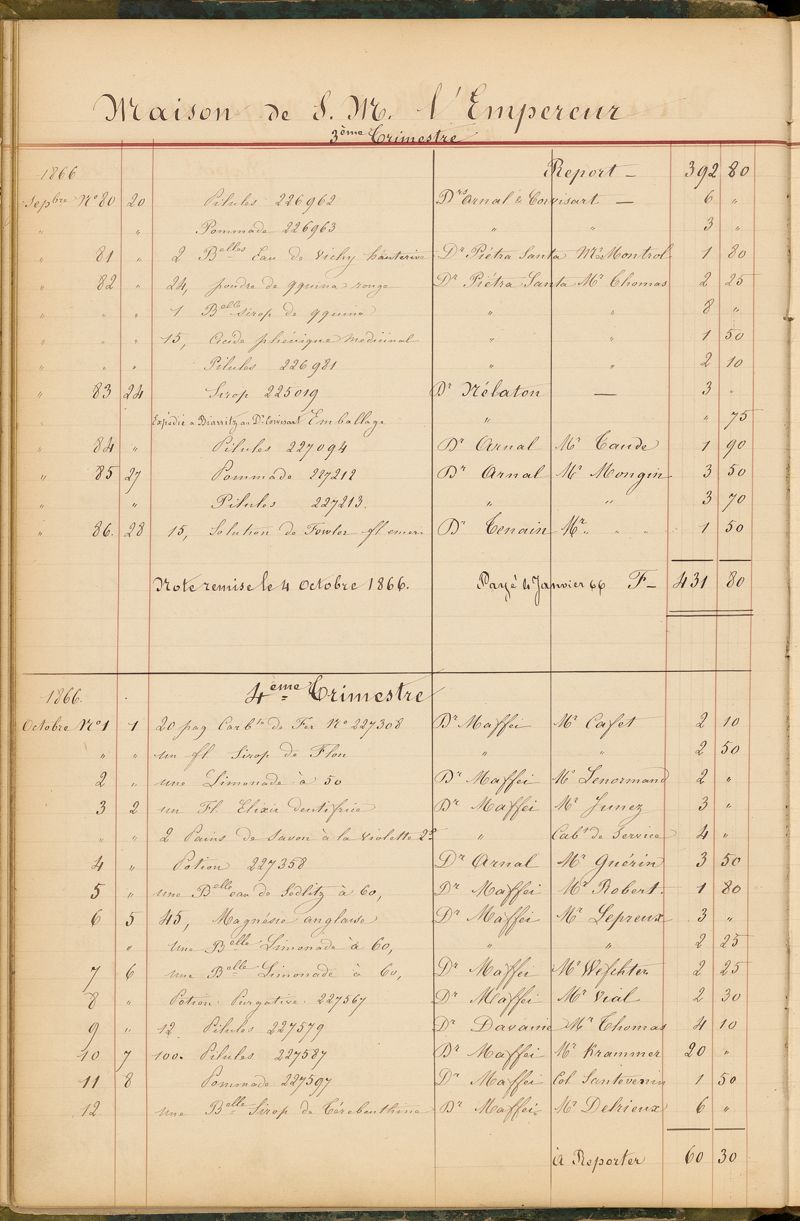 Maison de S. M. l'Empereur
3ème Trimestre
1866 Report — 392 80
Sepbre No 80 20 Pilules 226962 Drs Arnal & Corvisart — 6 "
" " Pommade 226963 " " 3 "
" 81 " 2 Belles Eau de Vichy hauterive Dr Piétra Santa Mr Montrol 1 80
" 82 " 24, poudre de qquina rouge Dr Piétra Santa Mr Thomas 2 25
" " " 1 Belle sirop de qquina " " 8 "
" " " 15, Acide phénique medicinal " " 1 50
" " " Pilules 226981 " " 2 10
" 83 24 Sirop 225019 Dr Nélaton — 3 "
Expédié a Biarritz au Dr Corvisart Emballage " " 75
" 84 " Pilules 227094 Dr Arnal Mr Taude 1 90
" 85 27 Pommade 227212 Dr Arnal Mr Mongin 3 50
" " Pilules 227213. " " 3 70
" 86. 28 15, Solution de Fowler fl emeri Dr Tenain Mr " " " 1 50
Note remise le 4 Octobre 1866. Payé 4 Janvier 66 F— 431 80
1866. 4eme Trimestre
Octobre No 1 1 20 paq Carbte de Fer No 227308 Dr Maffei Mr Cafet 2 10
" " un fl Sirop de Flon " " 2 50
2 " une Limonade à 50 Dr Maffei Mr Lenormand 2 "
3 2 un Fl. Elixir dentifrice Dr Maffei Mr Junez 3 "
" " 2 Pains de savon à la violette 2o " Cabt de Service 4 "
4 " Potion 227358 Dr Arnal Mr Guérin 3 50
5 " une Belle eau de Sedlitz à 60, Dr Maffei Mr Robert. 1 80
6 5 45, Magnésie anglaise Dr Maffei Mr Lepreux 3 "
" une Belle Limonade à 60, " " 2 25
7 6 une Belle Limonade à 60, Dr Maffei Mr Weschter 2 25
8 " Potion Purgative 227567 Dr Maffei Mr Vial 2 30
9 " 12 Pilules 227579 Dr Davaine Mr Thomas 4 10
10 7 100. Pilules 227587 Dr Maffei Mr Krammer 20 "
11 8 Pommade 227597 Dr Maffei Col Santovenin 1 50
12 une Belle Sirop de Térébenthine Dr Maffei Mr Delrieux 6 "
à Reporter 60 30